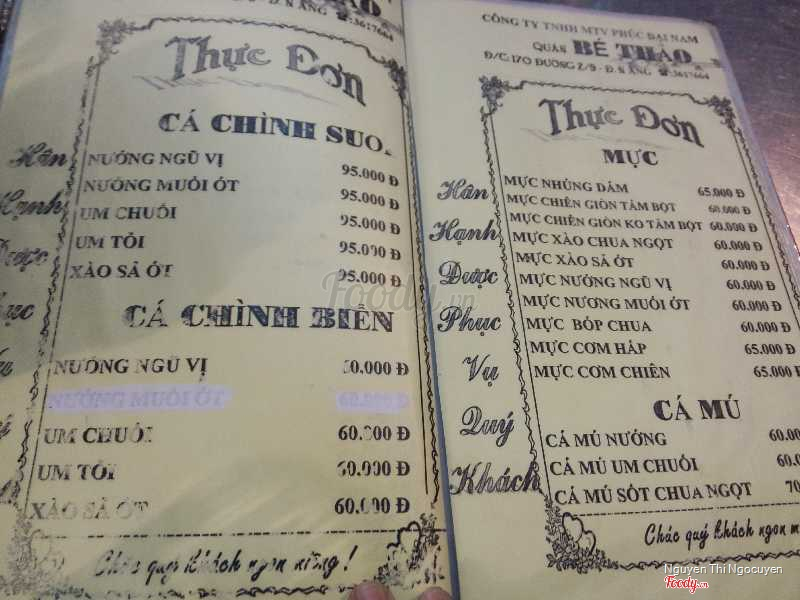 THẢO
Đ. N ẴNG ☎:3617664
Thực Đơn
CÁ CHÌNH SUỐI
NƯỚNG NGŨ VỊ 95.000 Đ
NƯỚNG MUỐI ỚT 95.000 Đ
UM CHUỐI 95.000 Đ
UM TỎI 95.000 Đ
XÀO SẢ ỚT 95.000 Đ
CÁ CHÌNH BIỂN
NƯỚNG NGŨ VỊ 60.000 Đ
NƯỚNG MUỐI ỚT 60.000 Đ
UM CHUỐI 60.000 Đ
UM TỎI 60.000 Đ
XÀO SẢ ỚT 60.000 Đ
Hân
Hạnh
Được
Chúc quý khách ngon miệng !
CÔNG TY TNHH MTV PHÚC ĐẠI NAM
QUÁN BÉ THẢO
Đ/C: 170 ĐƯỜNG 2/9 - Đ. N ẴNG ☎:3617664
Thực Đơn
MỰC
MỰC NHÚNG DẤM 65.000 Đ
MỰC CHIÊN GIÒN TẨM BỘT 60.000 Đ
MỰC CHIÊN GIÒN KO TẨM BỘT 60.000 Đ
MỰC XÀO CHUA NGỌT 60.000 Đ
MỰC XÀO SẢ ỚT 60.000 Đ
MỰC NƯỚNG NGŨ VỊ 60.000 Đ
MỰC NƯƠNG MUỐI ỚT 60.000 Đ
MỰC BÓP CHUA 60.000 Đ
MỰC CƠM HẤP 65.000 Đ
MỰC CƠM CHIÊN 65.000 Đ
CÁ MÚ
CÁ MÚ NƯỚNG 60.00
CÁ MÚ UM CHUỐI 60.0
CÁ MÚ SỐT CHUA NGỌT 70
Hân
Hạnh
Được
Phục
Vụ
Quý
Khách
Chúc quý khách ngon m
Foody.vn
Nguyen Thi Ngocuyen
Foody.vn